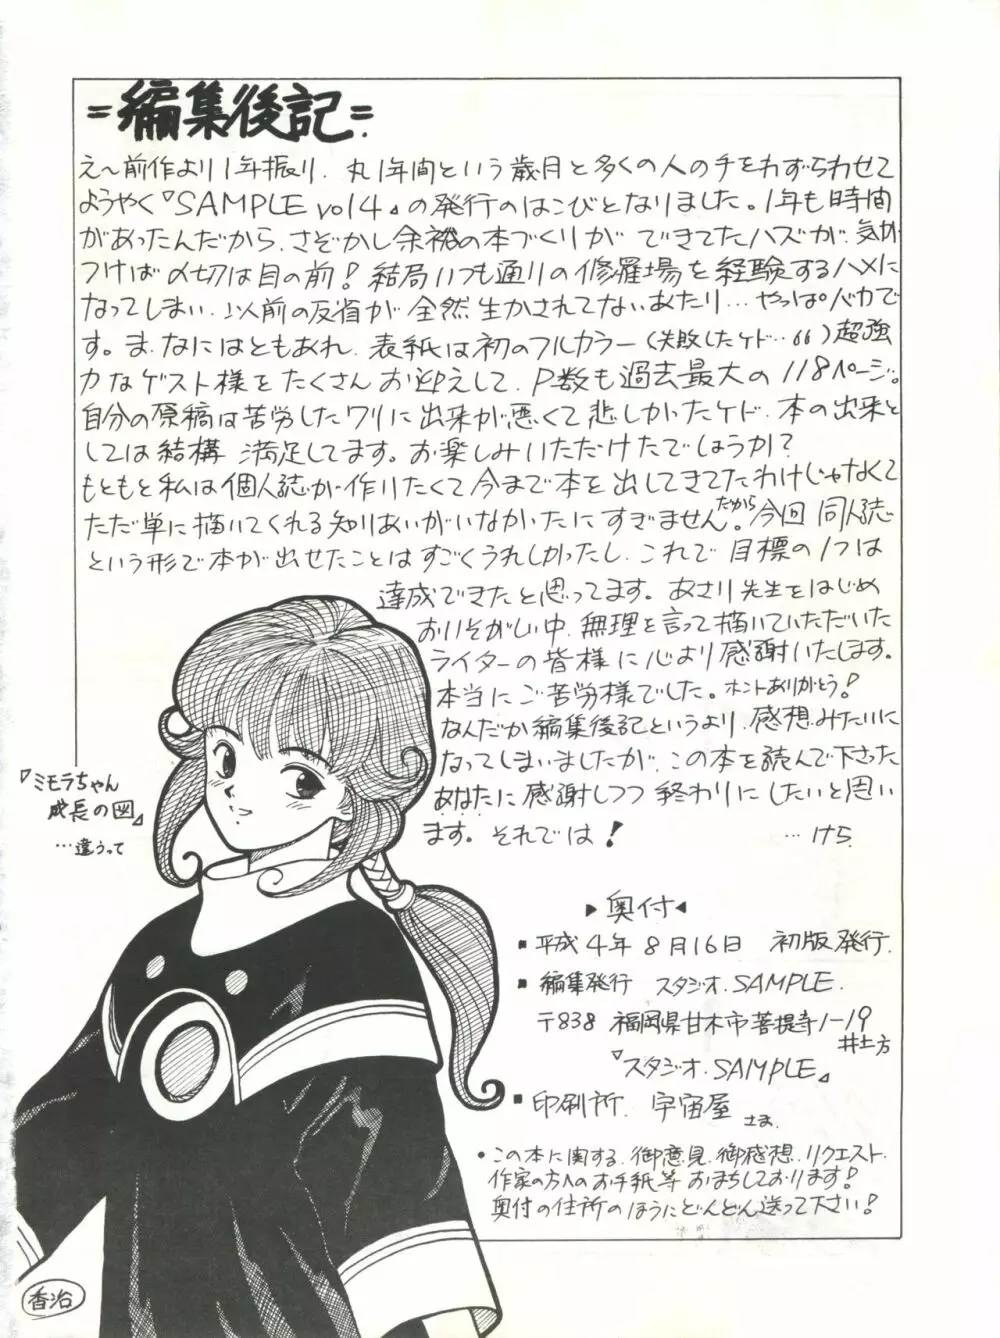 =編集後記=
え〜前作より1年振り、丸1年間という歳月と多くの人の手をわずらわせて
ようやく『SAMPLE vol4』の発行のはこびとなりました。1年も時間
があったんだから、さぞかし余裕の本づくりができてたハズが、気が
つけば〆切は目の前!結局いつも通りの修羅場を経験するハメに
なってしまい、以前の反省が全然生かされてないあたり…やっぱバカで
す。ま、なにはともあれ、表紙は初のフルカラー(失敗したケド…)超強
力なゲスト様をたくさんお迎えして、P数も過去最大の118ページ。
自分の原稿は苦労したワリに出来が悪くて悲しかったケド、本の出来と
しては結構満足してます。お楽しみいただけたでしょうか?
もともと私は個人誌が作りたくて今まで本を出してきてたわけじゃなくて
ただ単に描いてくれる知りあいがいなかったにすぎません。だから今回同人誌
という形で本が出せたことはすごくうれしかったし、これで目標の1つは
達成できたと思ってます。あさり先生をはじめ
おいそがしい中、無理を言って描いていただいた
ライターの皆様に心より感謝いたします。
本当にご苦労様でした。ホントありがとう!
なんだか編集後記というより、感想みたいに
なってしまいましたが、この本を読んで下さった
あなたに感謝しつつ終わりにしたいと思い
ます。それでは!
『ミモラちゃん
成長の図』
…違うって
▶奥付◀
■平成4年8月16日 初版発行.
■編集発行 スタジオ.SAMPLE.
〒838 福岡県甘木市菩提寺1-19
井上方
『スタジオ.SAMPLE』
■印刷所. 宇宙屋さま.
・この本に関する、御意見、御感想、リクエスト、
作家の方への お手紙等 おまちしております!
奥付の住所のほうにどんどん送って下さい!
香治